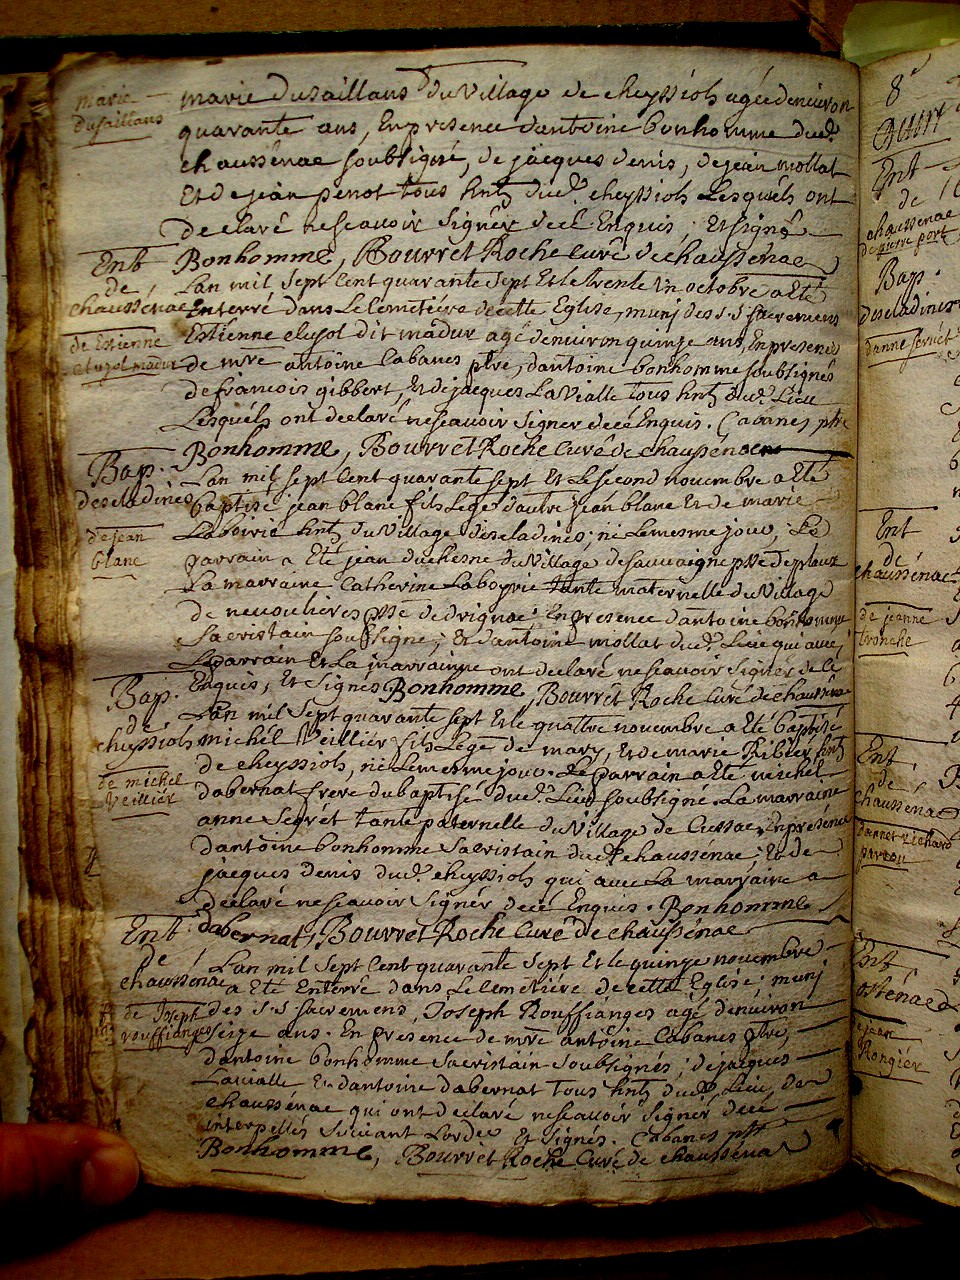 marie
Dusaillans
marie Dusaillans du Village de cheyssiols agée denuiron
quarante ans, En presence dantoine bonhomme dud.
chaussénac soubsigné, de jacques denis, de jean mollat
Et de jean penot tous hnts dud. cheyssiols Lesquels ont
declaré nescauoir Signer de ce Enquis; Et signé
Bonhomme, Bourret Roche Curé de chaussénac
Ent
de
chaussénac
de Estienne
clugol madur
Lan mil Sept Cent quarante sept Et le trente Un octobre a Eté
Enterré dans Le Cemetiére de cette Eglise, muni des S.S sacremens
Estienne clugol dit madur agé denuiron quinze ans, En presence
de mre antoine Cabanes ptre, dantoine bonhomme soubsignés
de francois gibbert, Et de jacques LaVialle tous hnts dud. Lieu
Lesquels ont declaré nescauoir Signer de ce Enquis. Cabanes ptre
Bonhomme, Bourret Roche Curé de chaussénac
Bap.
desCladines
de jean
blanc
Lan mil sept Cent quarante sept Et Le second nouembre a Eté
baptisé jean blanc fils Lege dautre jean blanc Et de marie
Laboirie hnts du Village desCladines; né Le mesme jour, Le
parrain a Eté jean duchesne du Village de sauuaigne psse de pleaux
La marraine Catherine Laboyrie tante maternelle du Village
de neuoulieres psse de drignac; En presence dantoine bonhomme
Sacristain soubsigné; Et dantoine mollat dud. Lieu qui auec
Le parrain Et La marrainne ont declaré nescauoir Signer de ce
Enquis, Et Signés Bonhomme, Bourret Roche Curé de chaussénac
Bap.
de
cheyssiols
de michel
Veillier
Lan mil Sept quarante sept Et le quattre nouembre a Eté baptisé
michel Veillier fils Lege de mary, Et de marie Ribier hnts
de cheyssiols, né Le mesme jour. Le parrain a Eté michel
dabernat frere du baptisé dud. Lieu soubsigné. La marraine
anne Segrét tante paternelle du Village de Cussac, En presence
dantoine bonhomme Sacristain dud. chaussénac; Et de
jacques denis dud. cheyssiols qui auec La marraine a
declaré nescauoir Signer de ce Enquis. Bonhomme
dabernat, Bourret Roche Curé de chaussénac
Ent
de
chaussénac
de Joseph
rouffianges
Lan mil Sept Cent quarante Sept Et le quinze nouembre
a Eté Enterré dans Le Cemetiére de cette Eglise; muni
des S.S sacremens, Joseph Rouffianges agé denuiron
Seize ans. En presence de mre antoine Cabanes ptre,
dantoine bonhomme Sacristain soubsignés, de jacques
Lavialle Et dantoine dabernat tous hnts dud. Lieu, de
chaussénac qui ont declaré nescauoir Signer de ce
interpellés Suiuant Lordce Et Signés. Cabanes ptre
Bonhomme, Bourret Roche Curé de chaussénac
8
Ent
de
chaussénac
de pierre port
Bap.
desCladines
danne seruét
Ent
de
chaussénac
de jeanne
tronche
Ent
de
chaussénac
Ent
jean
Rongiér